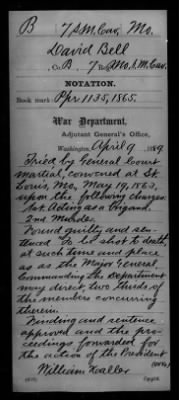 B 7 S.M. Cav., Mo.
David Bell
Co. B, 7 Reg Mo. S.M. Cav.
NOTATION.
Book mark: Ppr 1135, 1865.
War Department,
Adjutant General's Office,
Washington, April 9 1889.
Tried by General Court
martial, convened at St.
Louis, Mo, May 19, 1863,
upon the following charges:
1st. Acting as a Brigand.
2nd. Murder.
Found guilty and sen-
tenced To be shot to death,
at such time and place
as as the Major General
Commanding the Department
may direct, two thirds of
the members concurring
therein.
Finding and sentence
approved and the pro-
ceedings forwarded for
the action of the President
William Haller
Copyist.